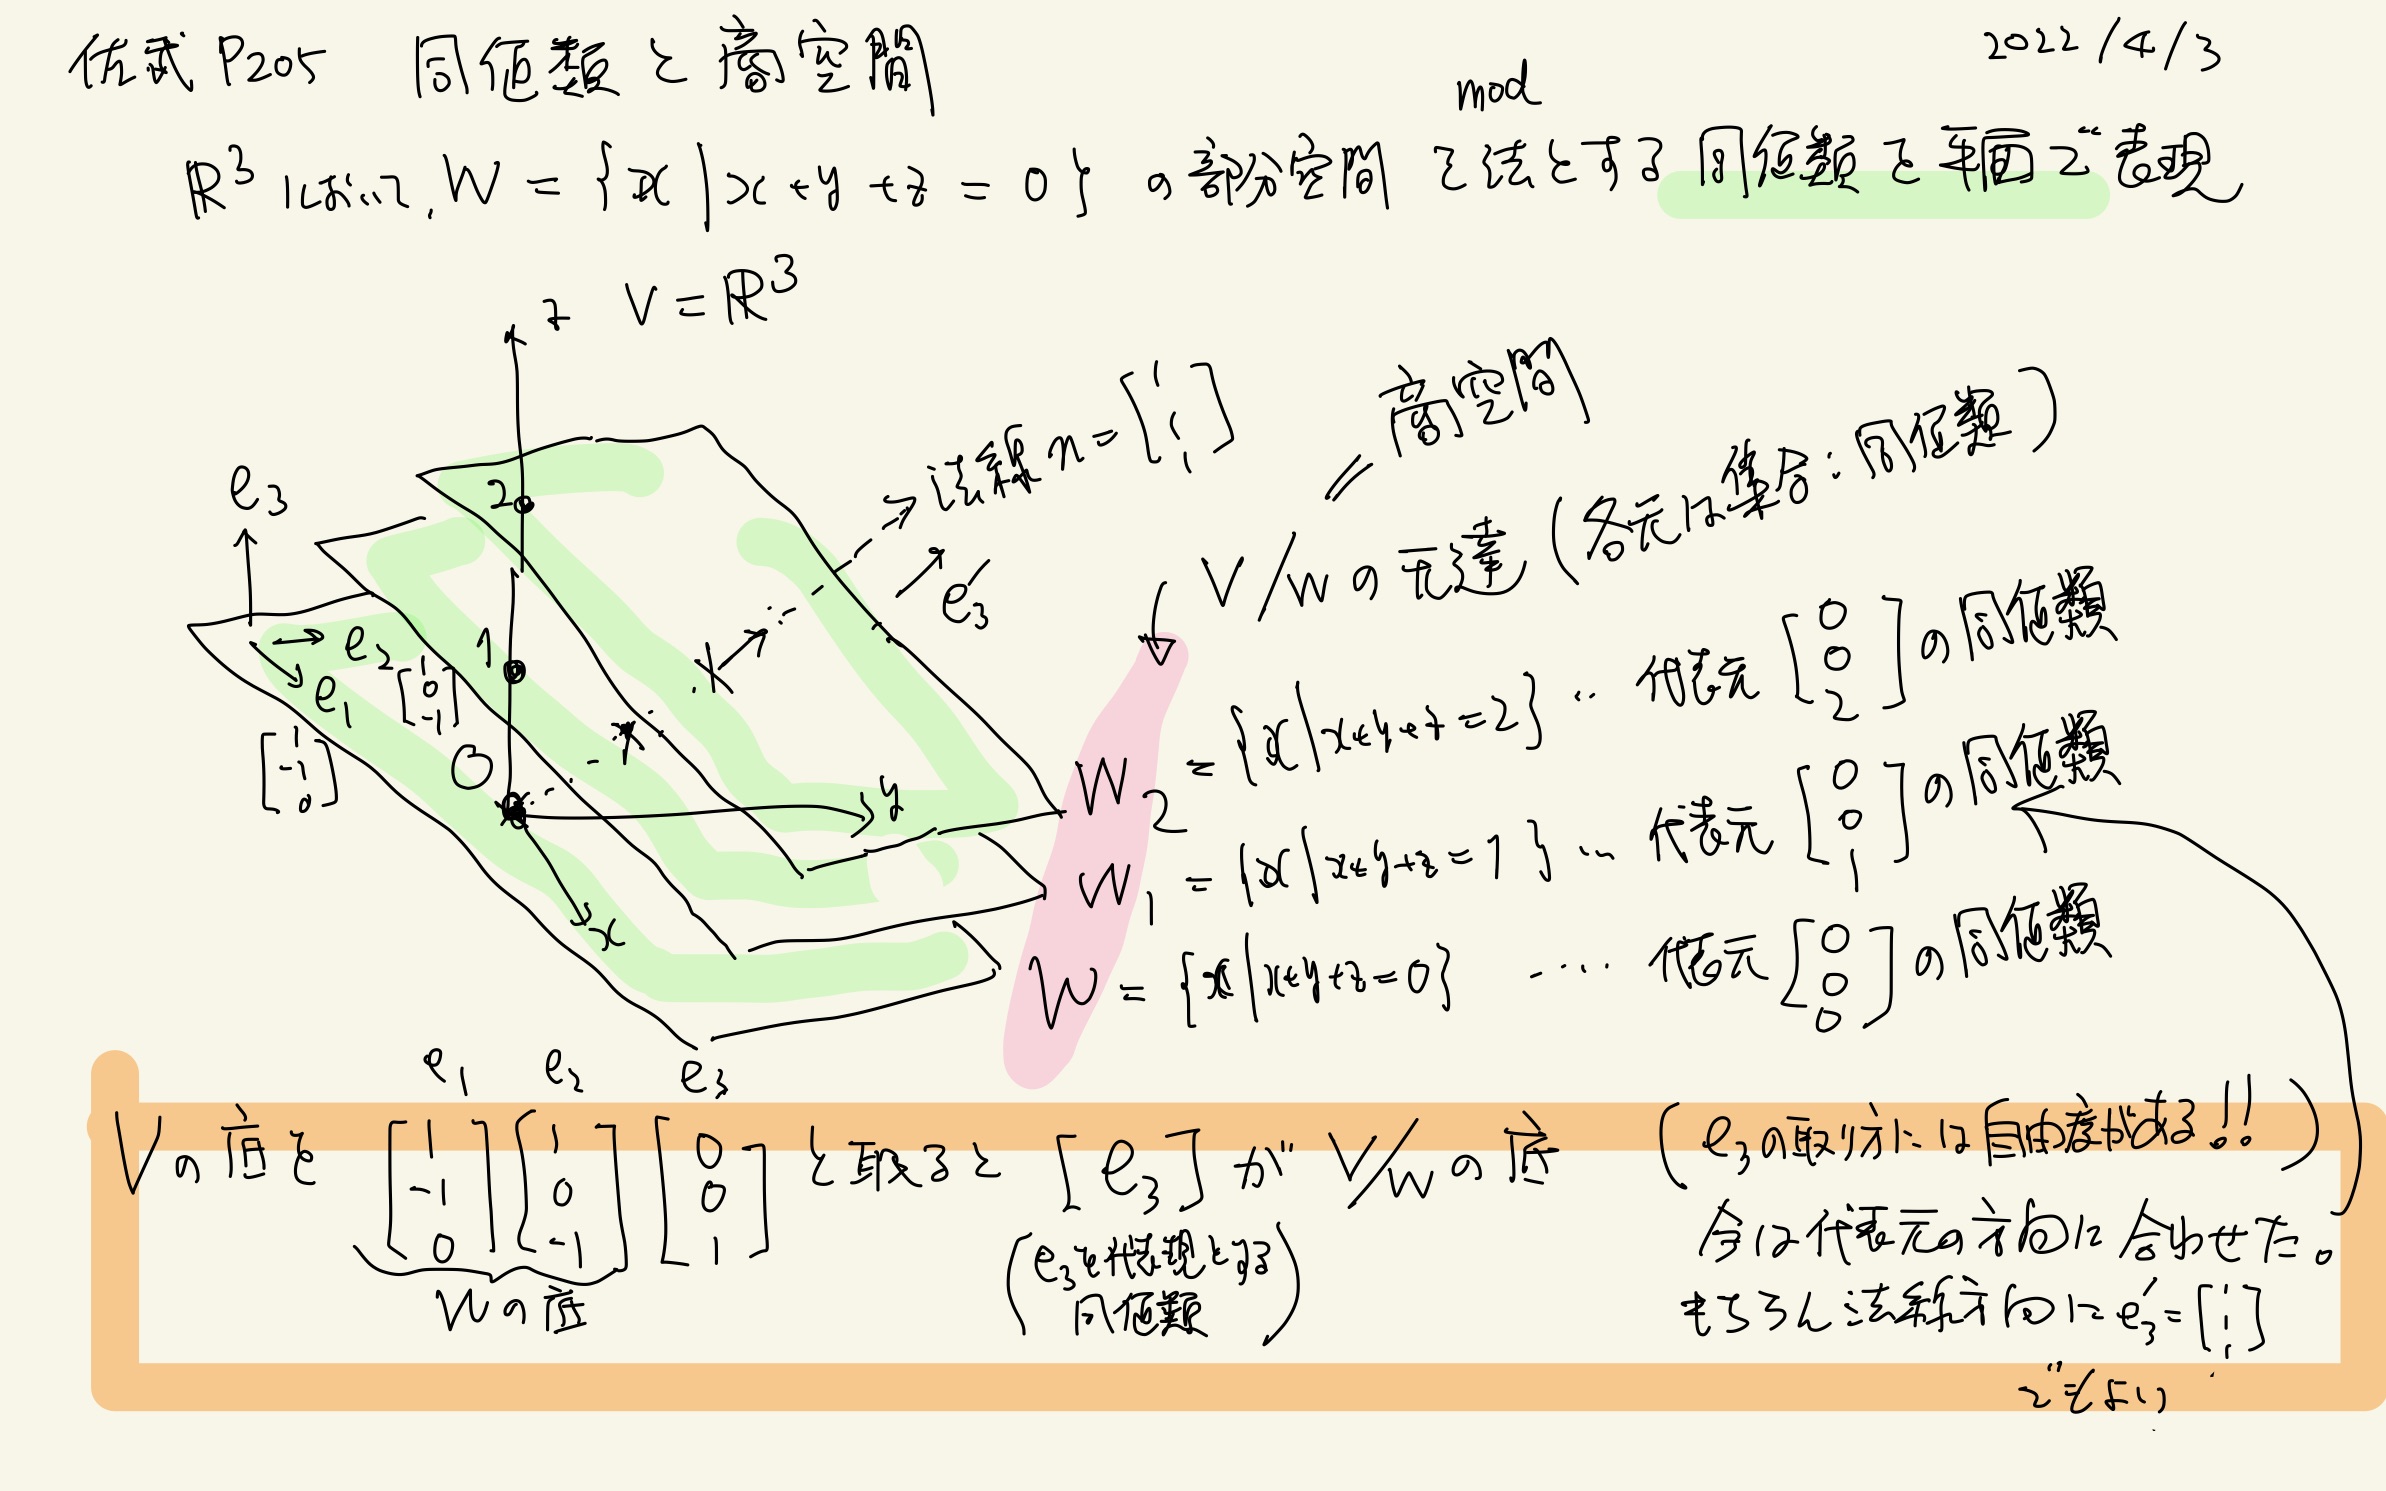 佐武 P205 同値類と商空間
2022/4/3
mod
ℝ³において、W = {x | x+y+z = 0} の部分空間を法とする同値類を平面で表現
z V=ℝ³
法線 n = [1 1 1]
商空間
=
V/W の元達 (各元は集合:同値類)
e₃
e₃′
2
1
0
e₂
[1 0 -1]
e₁
[1 -1 0]
y
x
W₂ = {x | x+y+z=2} … 代表元 [0 0 2] の同値類
W₁ = {x | x+y+z=1} … 代表元 [0 0 1] の同値類
W = {x | x+y+z=0} …. 代表元 [0 0 0] の同値類
e₁ e₂ e₃
Vの底を [1 -1 0] [1 0 -1] [0 0 1] と取ると [e₃] が V/W の底
Wの底
(e₃を代表現とする
同値類)
(e₃の取り方には自由度がある!!)
今は代表元の方向に合わせた。
もちろん法線方向に e₃′=[1 1 1]
でもよい